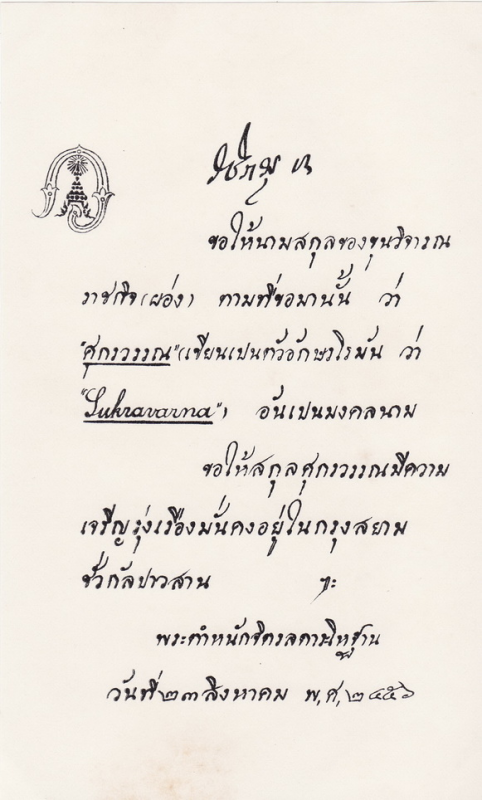 ขอให้นามสกุลของขุนวิจารณ
ราชกิจ (ผ่อง) ตามที่ขอมานั้น ว่า
"ศุกรวรรณ" (เขียนเปนตัวอักษรโรมัน ว่า
"Sukravarna") อันเปนมงคลนาม
ขอให้สกุลศุกรวรรณมีความ
เจริญรุ่งเรืองมั่นคงอยู่ในกรุงสยาม
ชั่วกัลปาวสาน ฯะ
พระตำหนักจิตรลดา
วันที่ ๒๓ สิงหาคม พ,ศ, ๒๔๕๖